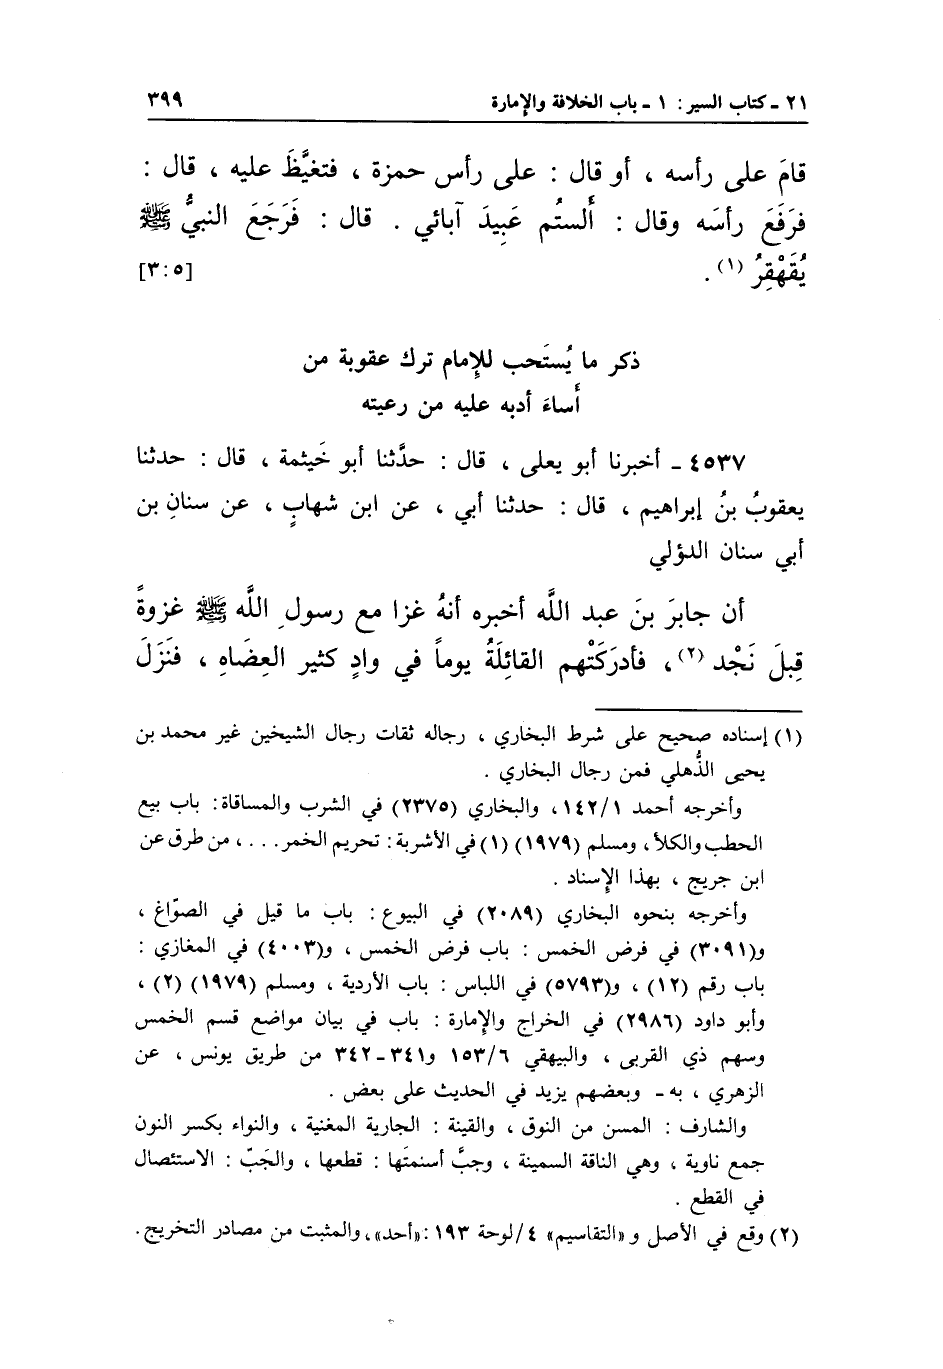 ٢١ ـ كتاب السير : ١ ـ باب الخلافة والإمارة ٣٩٩
قامَ على رأسه ، أو قال : على رأس حمزة ، فتغيَّظَ عليه ، قال :
فرَفَعَ رأسَه وقال : أَلستُم عَبِيدَ آبائي . قال : فَرَجَعَ النبيُّ ﷺ
يُقَهْقِرُ (١) . [٣:٥]
ذكر ما يُستَحب للإِمام ترك عقوبة من
أَساءَ أدبه عليه من رعيته
٤٥٣٧ ـ أخبرنا أبو يعلى ، قال : حدَّثنا أبو خَيثمة ، قال : حدثنا
يعقوبُ بنُ إبراهيم ، قال : حدثنا أبي ، عن ابن شهابٍ ، عن سنانِ بن
أبي سنان الدؤلي
أن جابرَ بنَ عبد اللَّه أخبره أنهُ غزا مع رسولِ اللَّه ﷺ غزوةً
قِبلَ نَجْد (٢) ، فأدرَكَتْهم القائلَةُ يوماً في وادٍ كثير العِضَاهِ ، فنَزَلَ
(١) إسناده صحيح على شرط البخاري ، رجاله ثقات رجال الشيخين غير محمد بن
يحيى الذُّهلي فمن رجال البخاري .
وأخرجه أحمد ١٤٢/١، والبخاري (٢٣٧٥) في الشرب والمساقاة : باب بيع
الحطب والكلأ ، ومسلم (١٩٧٩) (١) في الأشربة : تحريم الخمر . . . ، من طرق عن
ابن جريج ، بهذا الإِسناد .
وأخرجه بنحوه البخاري (٢٠٨٩) في البيوع : باب ما قيل في الصوّاغ ،
و(٣٠٩١) في فرض الخمس : باب فرض الخمس ، و(٤٠٠٣) في المغازي :
باب رقم (١٢) ، و(٥٧٩٣) في اللباس : باب الأردية ، ومسلم (١٩٧٩) (٢) ،
وأبو داود (٢٩٨٦) في الخراج والإِمارة : باب في بيان مواضع قسم الخمس
وسهم ذي القربى ، والبيهقي ١٥٣/٦ و٣٤١ـ٣٤٢ من طريق يونس ، عن
الزهري ، به ـ وبعضهم يزيد في الحديث على بعض .
والشارف : المسن من النوق ، والقينة : الجارية المغنية ، والنواء بكسر النون
جمع ناوية ، وهي الناقة السمينة ، وجبَّ أسنمتَها : قطعها ، والجَبّ : الاستئصال
في القطع .
(٢) وقع في الأصل و «التقاسيم» ٤/لوحة ١٩٣ : «أحد»، والمثبت من مصادر التخريج .